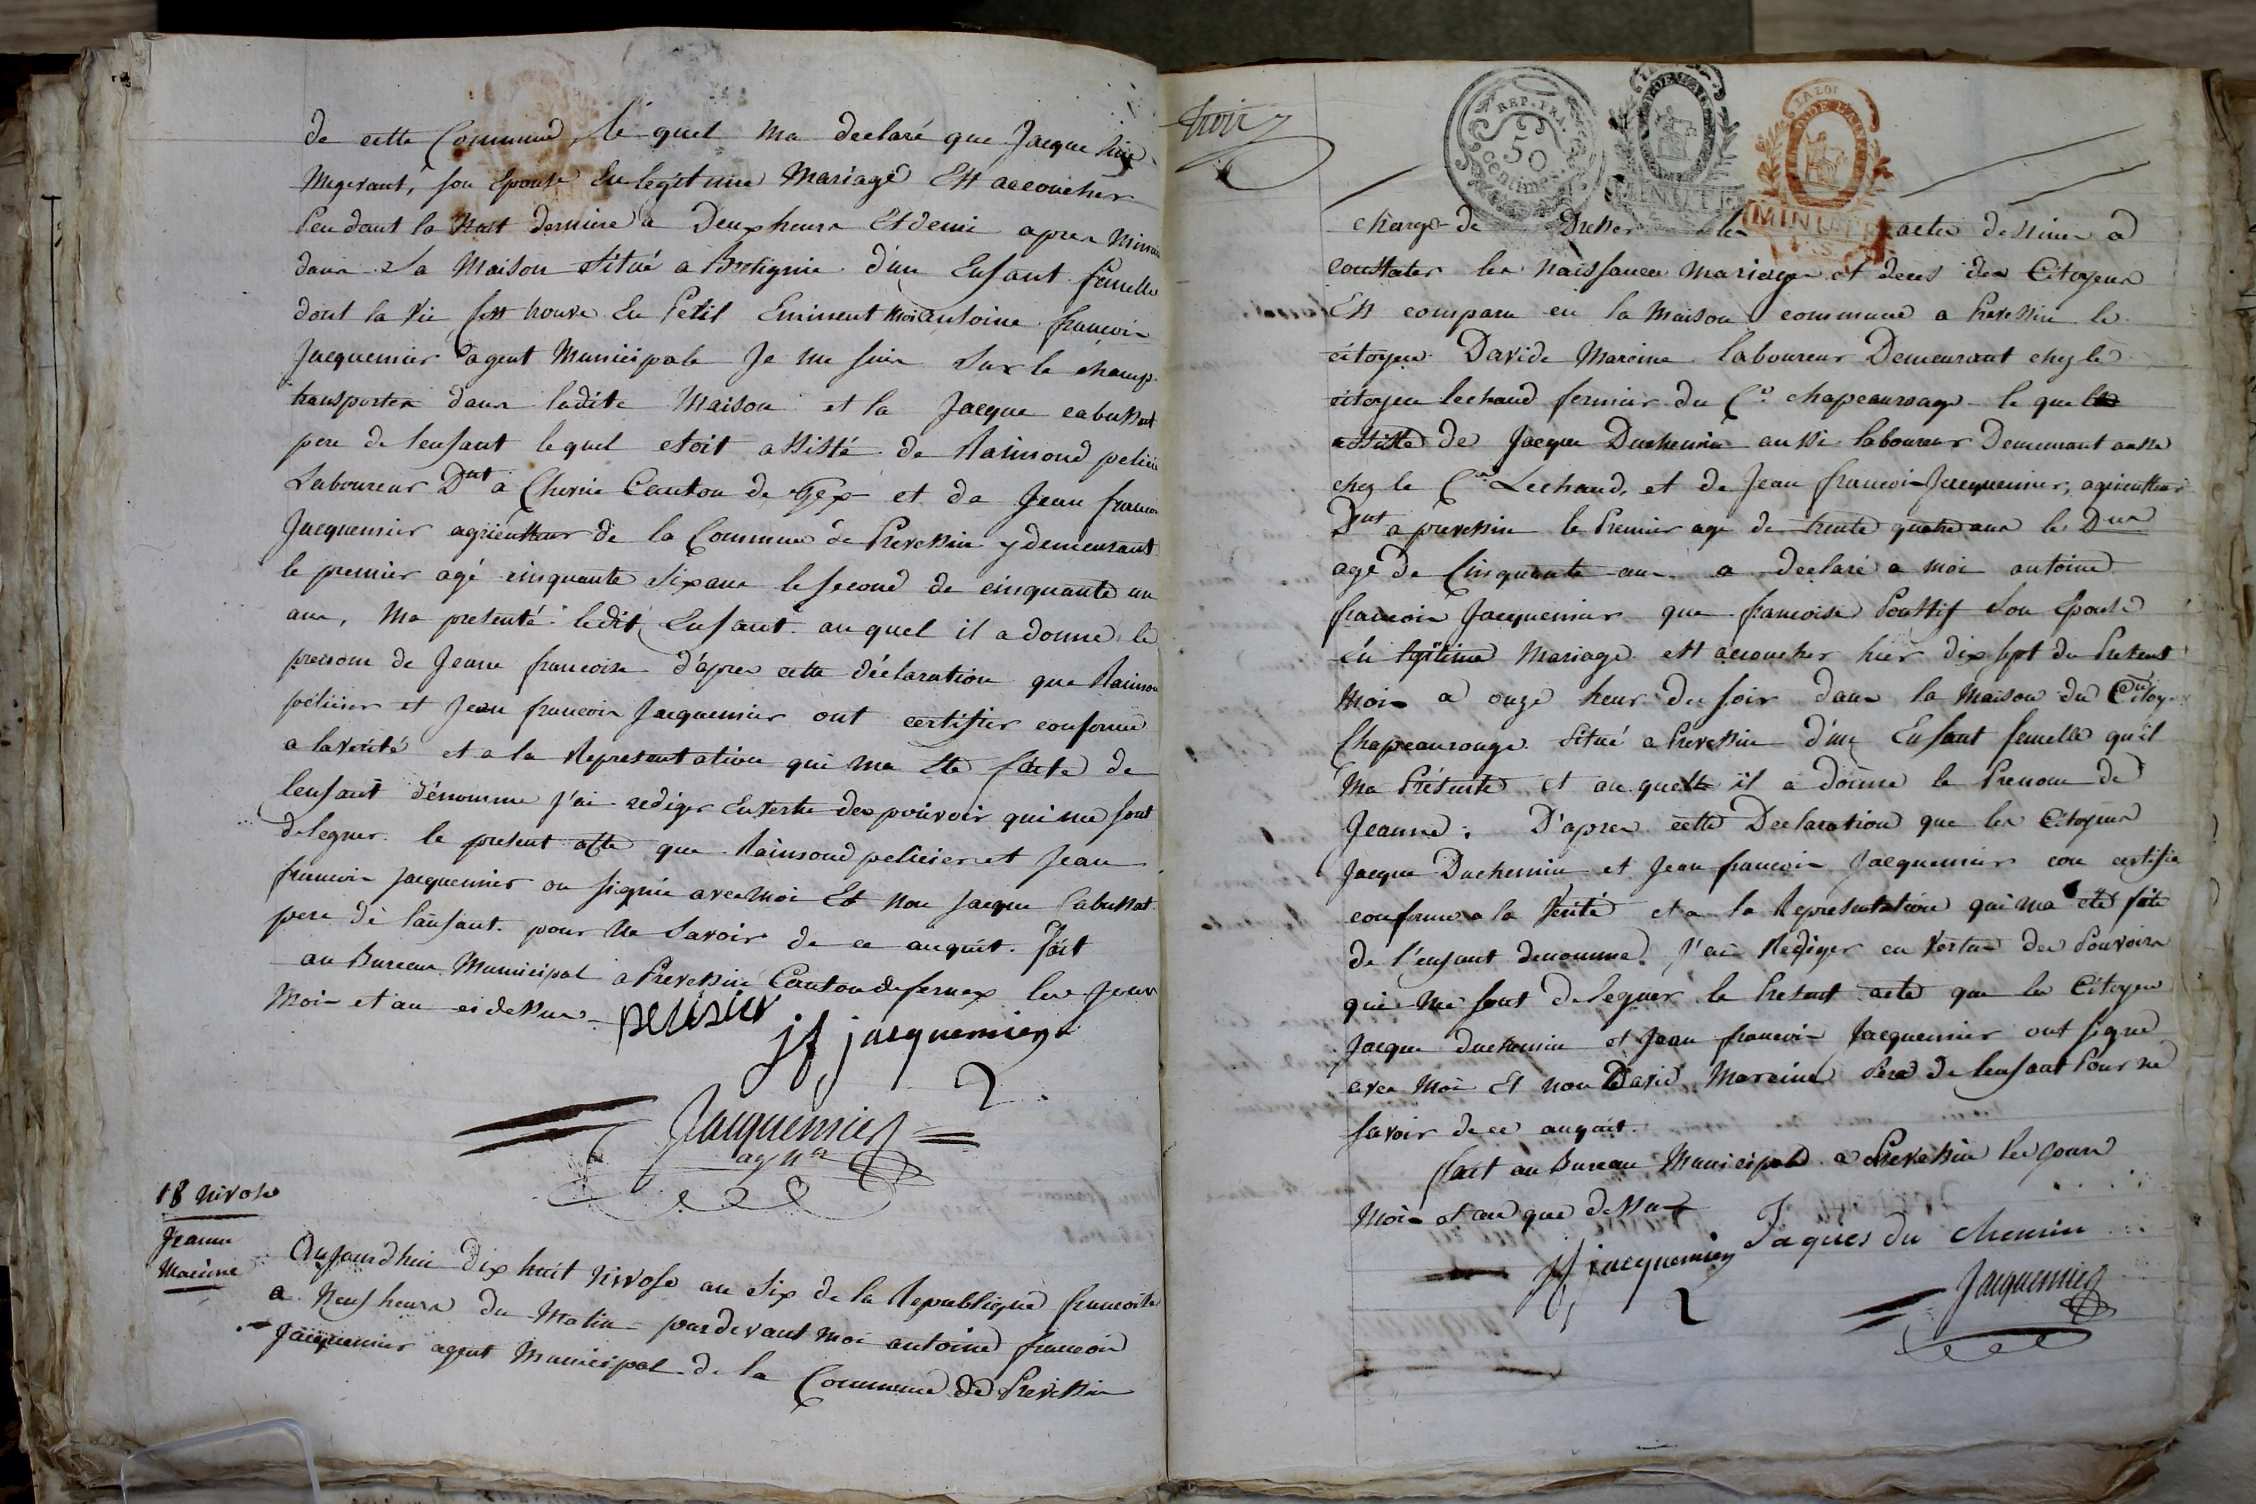 de cette Commune, le quel ma declaré que Jacque
Megevant, son Epouse En legitime Mariage Est accoucher
Pendant la Nuit derniere a Deux heurs Et demi apres Minui
dans Sa Maison Situé a Bretignie d'un Enfant femelle
dont la Vie sest trouve En Peril Eminent Moi antoine francois
Jacquemier agent Municipale Je me suis Sur le champ
transporter dans ladite Maison et la Jacque cabussat
pere de lenfant lequel etoit assisté de Raimond pelicie
Laboureur Dnt a Chevrie Canton de Gex et de Jean francois
Jacquemier agriculteur de la Commune de Prevessin y demeurant
le premier agé cinquante Six ans le second de cinquante un
ans, Ma presenté ledit Enfant auquel il a donne le
prenom de Jeanne francoise d'apres cette déclaration que Raimon
pelicier et Jean francois Jacquemier ont certifier conforme
a la verité et a la Representation qui ma Ete faite de
lenfant dénomme J'ai rediger En vertu des pouvoir qui me sont
deleguer le present acte que Raimond pelicier et Jean
francois Jacquemier on signie avec Moi Et Non Jacque Cabussat
pere de lanfant pour Ne Savoir de ce anquit. fait
au Bureau Municipal a Prevessin Canton de fernex les Jour
Mois et an ci dessus
pelisier
jf jacquemier
2
Jacquemier
agnt
18 Nivose
Jeanne
Macine
Aujourdhui dix huit Nivose an Six de la Republique francoise
a Neuf heurs du Matin pardevant Moi antoine francois
Jacquemier agent Municipal de la Commune de Prevessin
trois
REP. FRA.
50
centimes
LA LOI
MINUTE
MINUTE
charge de Dresser les actes destinés a
constater les Naissances Mariages et deces des Citoyens
Est comparu en la Maison commune a Prevessin le
citoyen Davide Marcine laboureur Demeurant chez le
citoyen lechaud fermier du Cn chapeaurouge le quel
assisté de Jacque Duchemin aussi laboureur Demeurant aussi
chez le Cn Lechaud, et de Jean francois Jacquemier, agriculteur
Dnt a prevessin le Premier age de trente quatre ans le
agé de Cinquante ans a declaré a Moi antoine
francois Jacquemier que francoise Poussif Son Epouse
En legitime Mariage est accoucher hier dix sept du Present
Mois a onze heur du soir dans la Maison du Citoyen
Chapeaurouge Situé a Prevessin d'un Enfant femelle qu'il
Ma Présenté et au quelle il a donne le Prenom de
Jeanne. D'apres cette Declaration que les Citoyens
Jacque Duchemin et Jean francois Jacquemier con certifie
conforme a la Verité et a la Representation qui ma été fète
de l'enfant denomme. J'ai Rediger en Vertu des Pouvoirs
qui Me sont deleguer le Present acte que les Citoyens
Jacque duchemin et Jean francois Jacquemier ont signe
avec Moi Et non David Marcine Pere de lenfant Pour ne
Savoir de ce anquit.
fait au Bureau Municipale a Prevessin les Jours
Mois et an que dessus
jf jacquemier
2
Jaques du chemin
Jacquemier